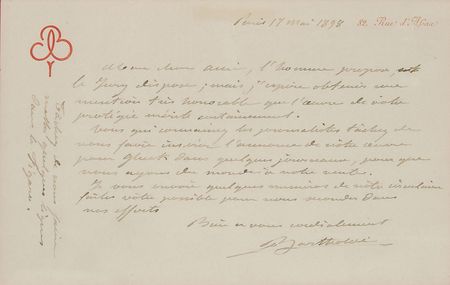 Paris 17 Mai 1898
82, Rue d'Assas
Mon cher ami, l'homme propose, et
le Jury dispose; mais j'espère obtenir une
mention très honorable que l'œuvre de votre
protégé mérite certainement.
Vous qui connaissez les journalistes tâchez de
nous faire insérer l'annonce de notre œuvre
pour Gluck dans quelques journaux, pour que
nous ayons du monde à notre vente.
Je vous envoie quelques numéros de notre circulaire
faites votre possible pour nous seconder dans
nos efforts
Bien à vous cordialement
Bartholdi
Tâchez de nous faire
mettre quelques lignes
dans le Figaro.